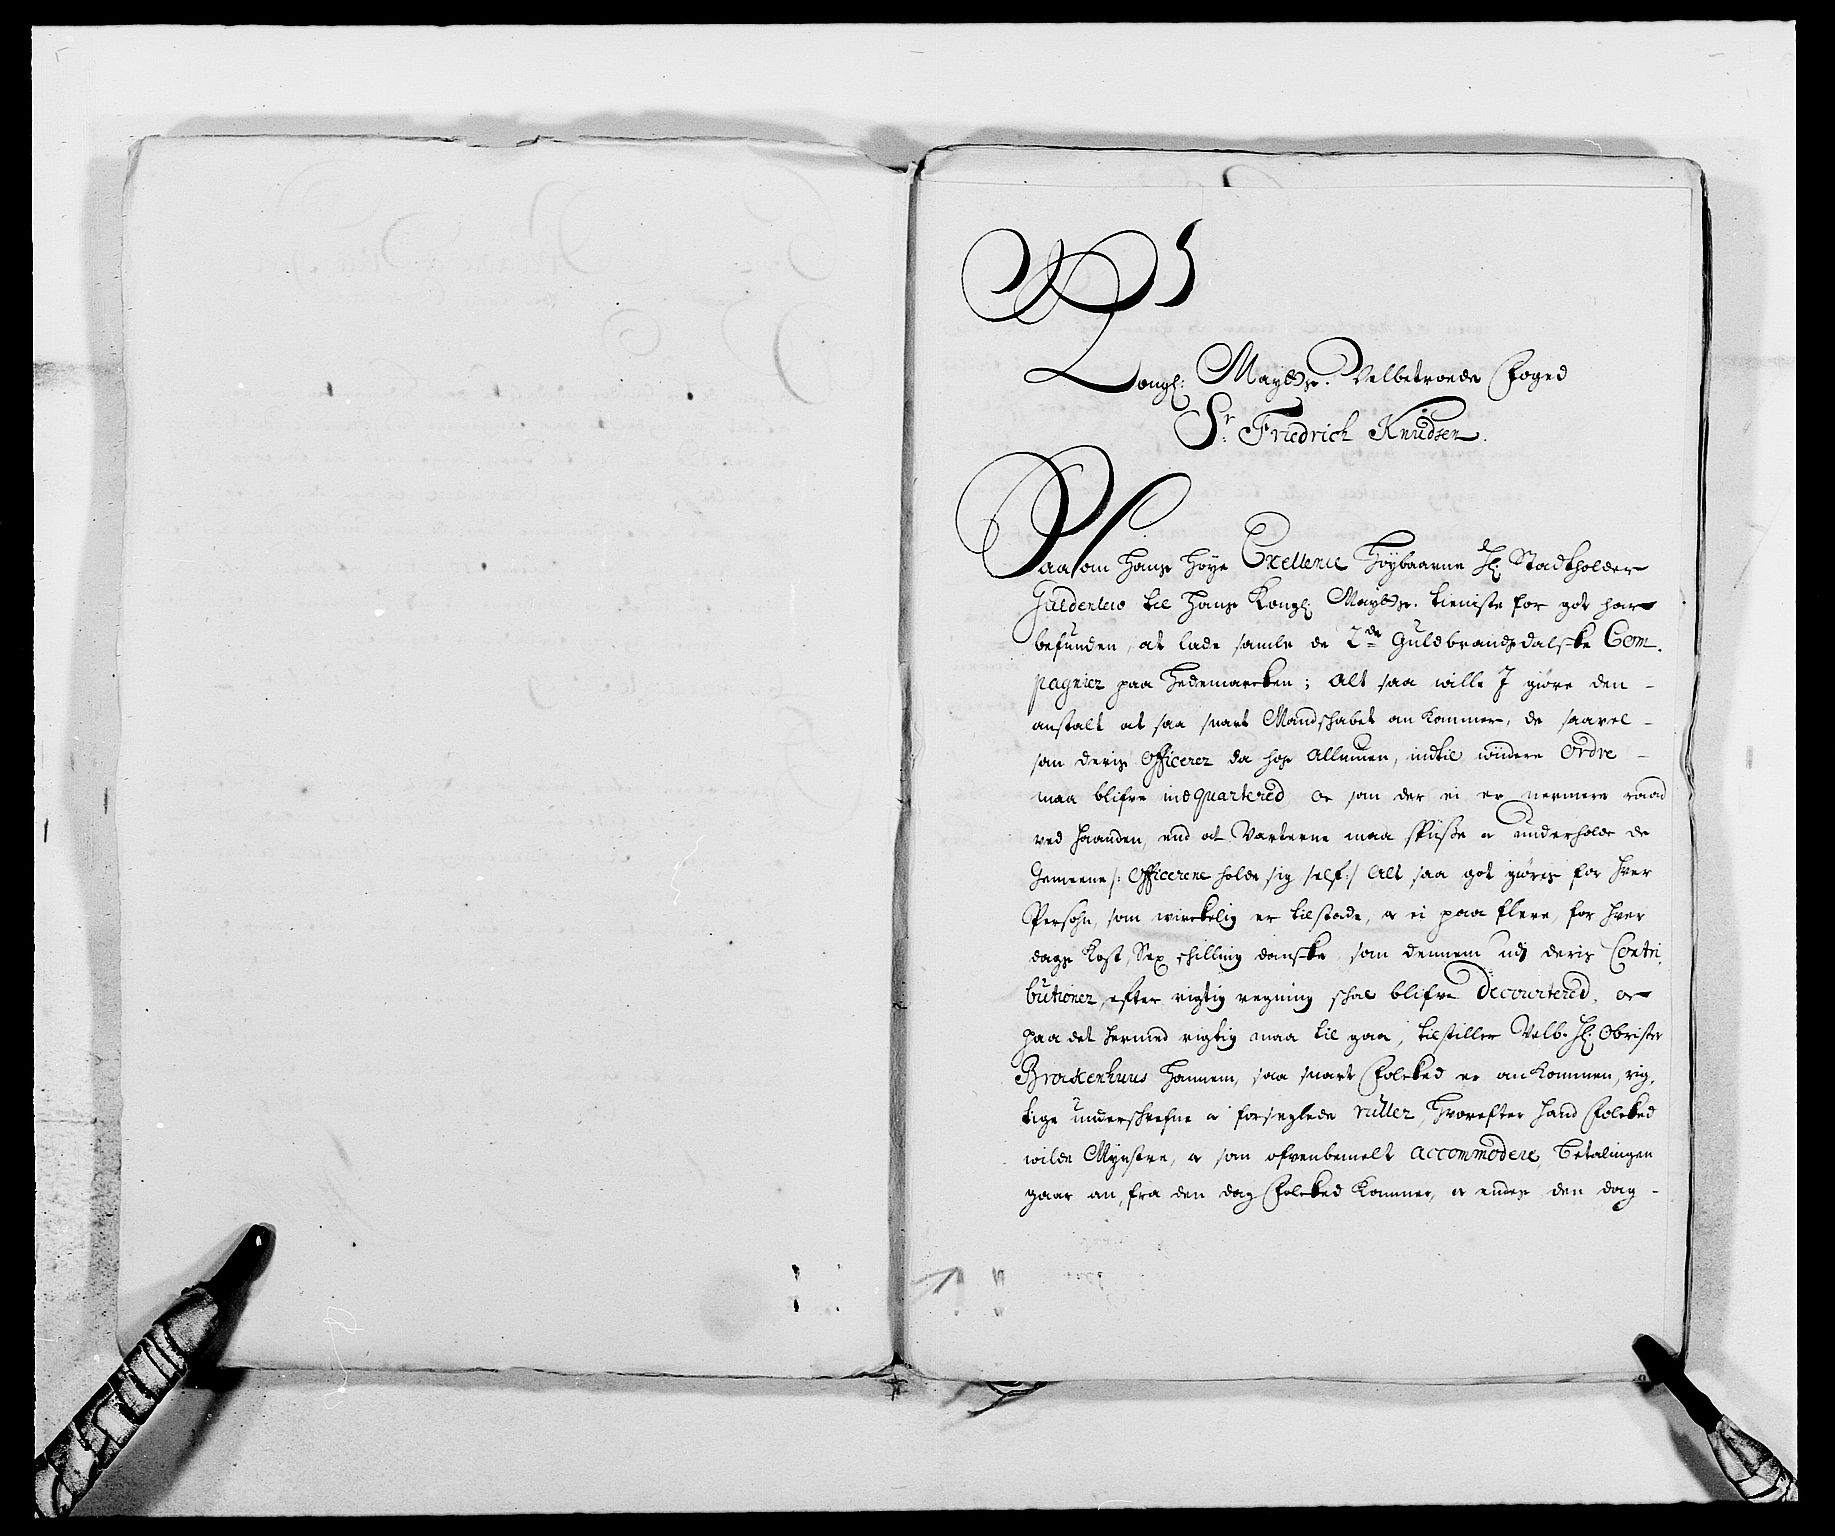 Kongl: Maytts. Velbetroede Foged
Sr: Friedrich Knudsen.
Saasom Hans Høye Exellence Høybaarne Hr Stadtholder
Guldenlew til Hans Kongl: Maytts. tieniste for got har
befunden, at lade samle de 2de Guldbrandsdalske Com,
pagnier paa Hedemarcken; Alt saa wille I giøre den -
anstalt at saa snart Mandschabet ankommer, de saavel -
som deris Officerer da hos Allmuen, indtil widere Ordre -
maa blifve indquartered, oc som der ei er nermere raad
ved Haanden, end at Verterne maa spiisse oc underholde de
Gemeene /: Officerene holde sig self :/ Alt saa got giøris for hver
Persohn, som wirckelig er tilstede, oc ei paa flere, for hver
dags Kost, Sex schilling danske, som dennem udj deris Contri,
butioner, efter rigtig regning schal blifve Decourtered, oc
paa det hermed rigtig maa til gaa, tilstiller Velb: Hr: Obrister
Brockenhuus Hannem, saa snart Folcked er ankommen, rig,
tige underschrefne oc forseglede ruller, Hvorefter Hand Folcked
wilde Mynstre, oc som ofvenbemelt accommodere, Betalingen
gaar an, fra den dag Folcked kommer, oc endes den dag -